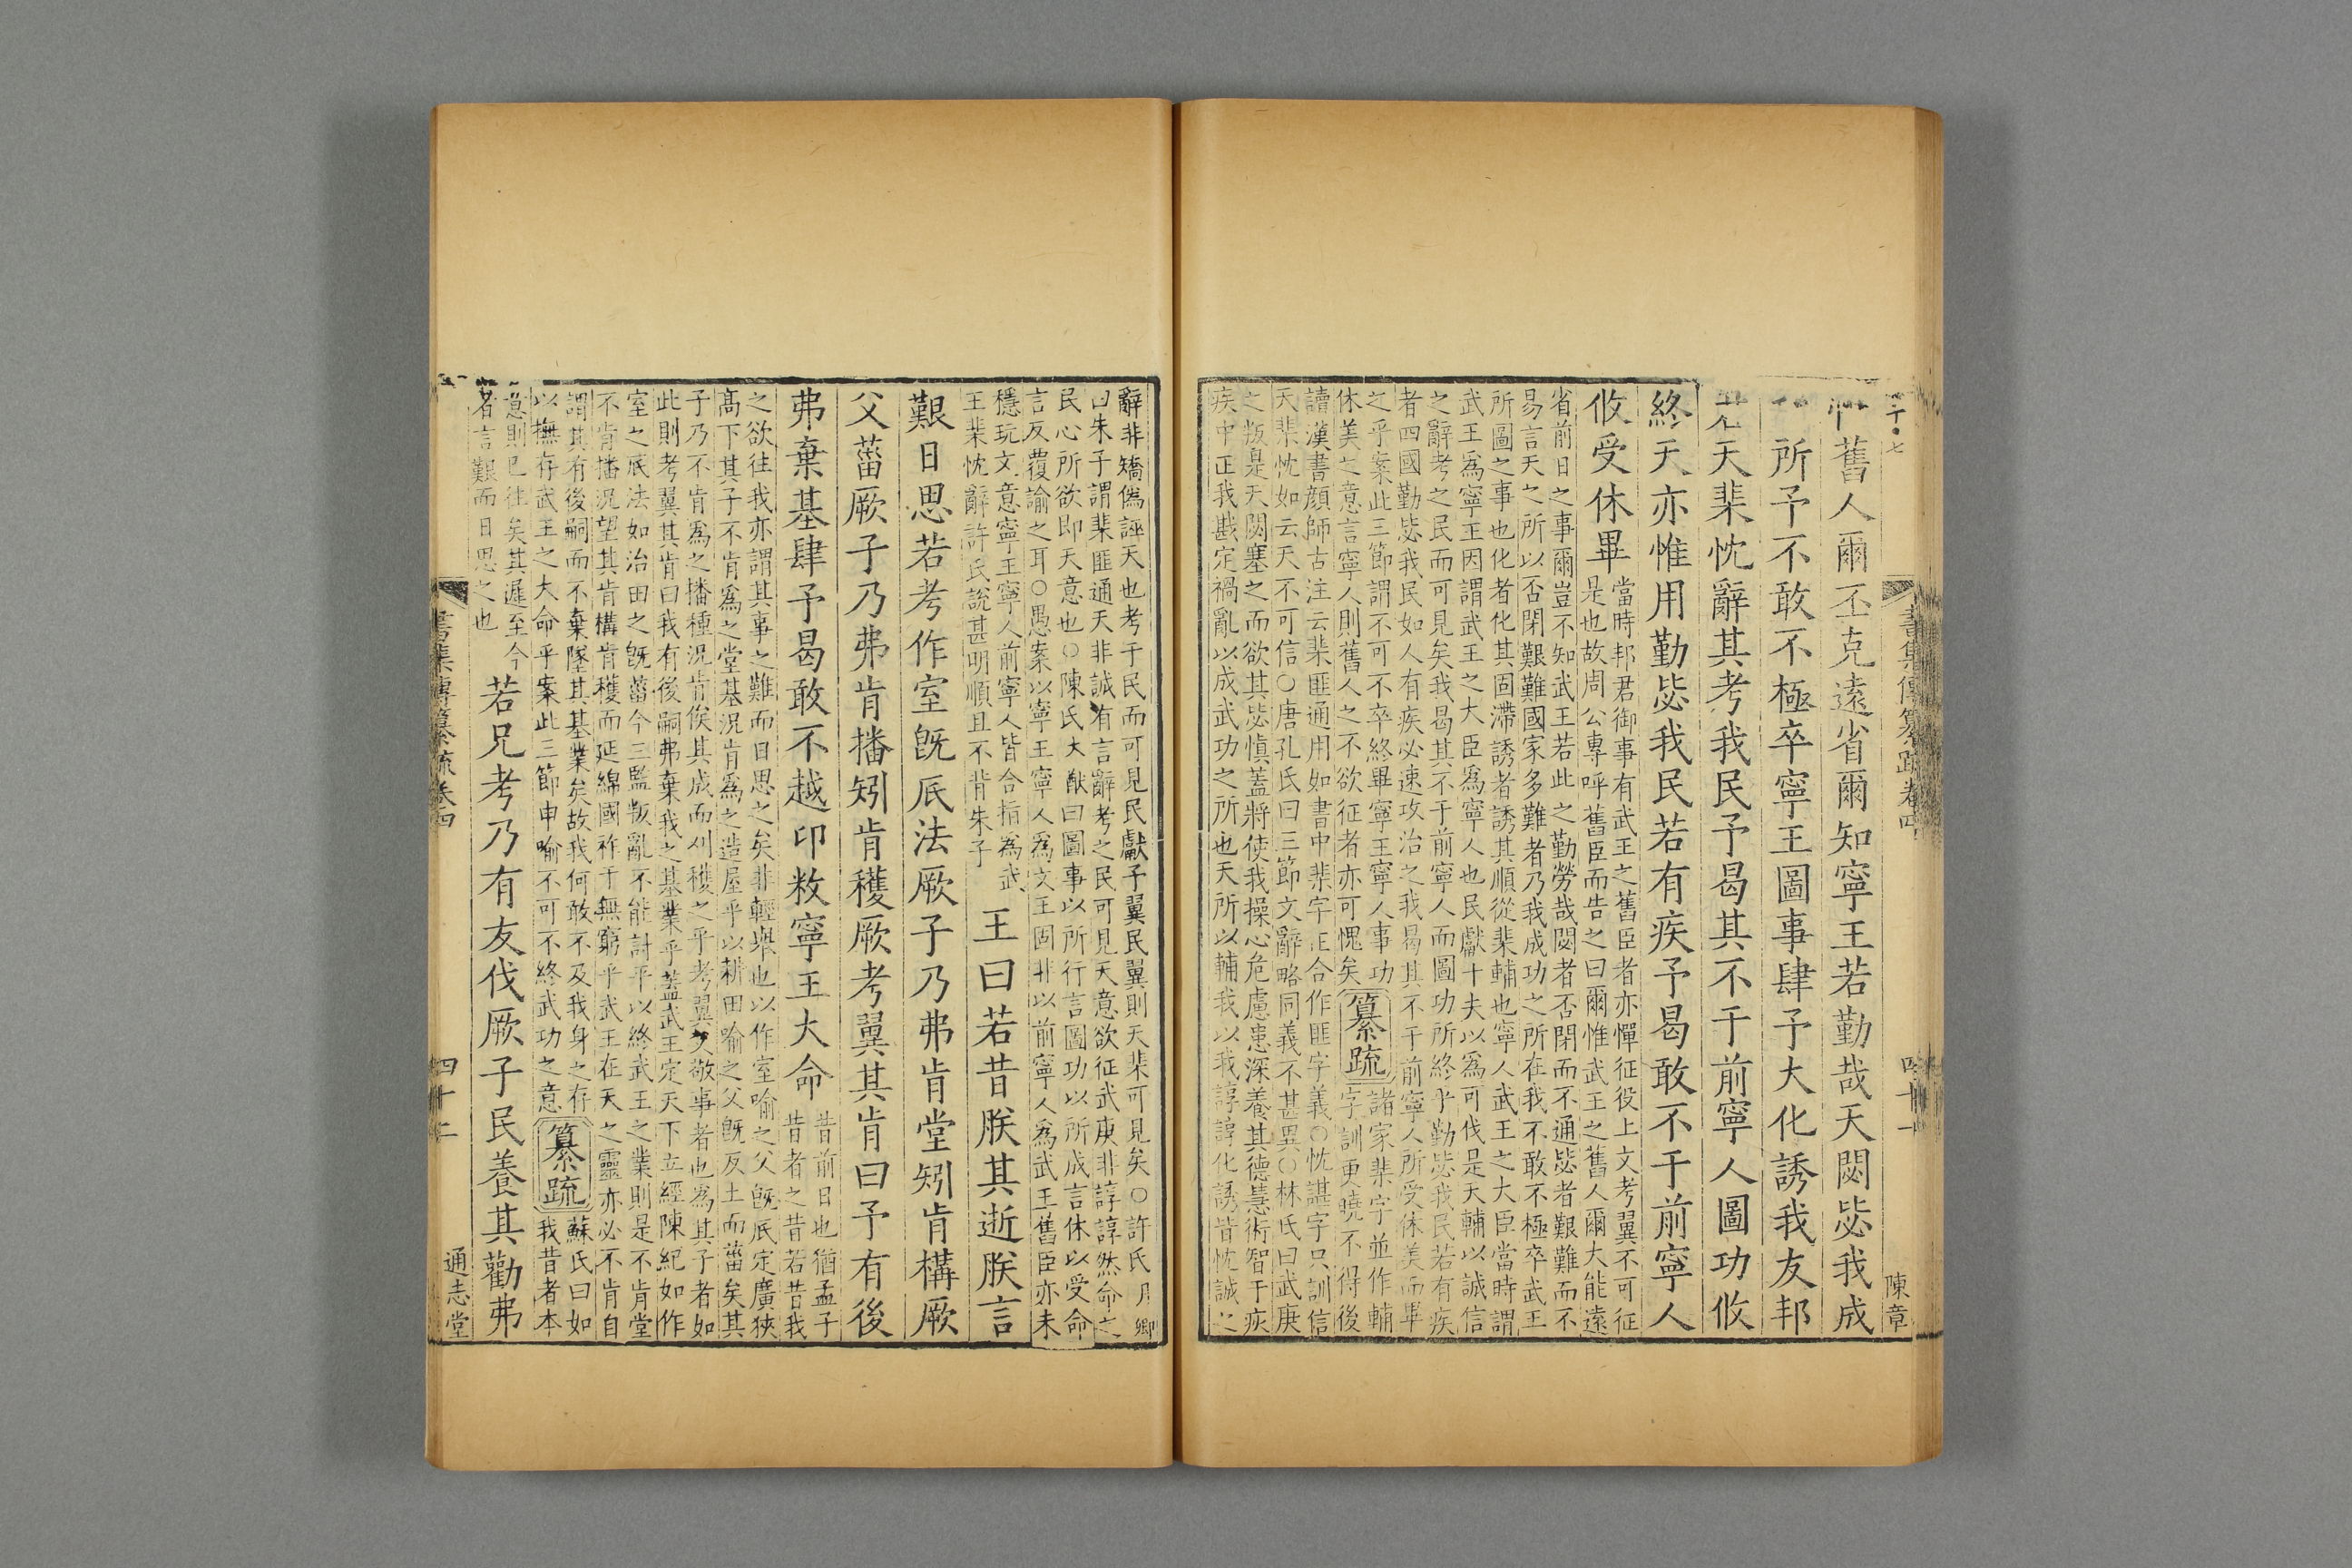 書集傳纂疏卷四
四十一
陳章
舊人爾丕克遠省爾知寧王若勤哉天閟毖我成
所予不敢不極卒寧王圖事肆予大化誘我友邦
天棐忱辭其考我民予曷其不于前寧人圖功攸
終天亦惟用勤毖我民若有疾予曷敢不于前寧人
攸受休畢
當時邦君御事有武王之舊臣者亦憚征役上文考翼不可征
是也故周公專呼舊臣而告之曰爾惟武王之舊人爾大能遠
省前日之事爾豈不知武王若此之勤勞哉閟者否閉而不通毖者艱難而不
易言天之所以否閉艱難國家多難者乃我成功之所在我不敢不極卒武王
所圖之事也化者化其固滯誘者誘其順從棐輔也寧人武王之大臣當時謂
武王爲寧王因謂武王之大臣爲寧人也民獻十夫以爲可伐是天輔以誠信
之辭考之民而可見矣我曷其不于前寧人而圖功所終乎勤毖我民若有疾
者四國勤毖我民如人有疾必速攻治之我曷其不于前寧人所受休美而畢
之乎案此三節謂不可不卒終畢寧王寧人事功
休美之意言寧人則舊人之不欲征者亦可愧矣
纂疏
諸家棐字並作輔
字訓更曉不得後
讀漢書顏師古注云棐匪通用如書中棐字正合作匪字義○忱諶字只訓信
天棐忱如云天不可信○唐孔氏曰三節文辭略同義不甚異○林氏曰武庚
之叛是天閟塞之而欲其毖愼蓋將使我操心危慮患深養其德慧術智于疢
疾中正我戡定禍亂以成武功之所也天所以輔我以我諄諄化誘皆忱誠之
辭非矯僞誣天也考于民而可見民獻予翼民翼則天棐可見矣○許氏月卿
曰朱子謂棐匪通天非諶有言辭考之民可見天意欲征武庚非諄諄然命之
民心所欲即天意也○陳氏大猷曰圖事以所行言圖功以所成言休以受命
言反覆諭之耳○愚案以寧王寧人爲文王固非以前寧人爲武王舊臣亦未
穩玩文意寧王寧人前寧人皆合指爲武
王棐忱辭許氏說甚明順且不背朱子
王曰若昔朕其逝朕言
艱日思若考作室旣厎法厥子乃弗肯堂矧肯構厥
父菑厥子乃弗肯播矧肯穫厥考翼其肯曰予有後
弗棄基肆予曷敢不越卬敉寧王大命
昔前日也猶孟子
昔者之昔若昔我
之欲往我亦謂其事之難而日思之矣非輕舉也以作室喻之父旣厎定廣狹
高下其子不肯爲之堂基況肯爲之造屋乎以耕田喻之父旣反土而菑矣其
子乃不肯爲之播種況肯俟其成而刈穫之乎考翼父敬事者也爲其子者如
此則考翼其肯曰我有後嗣弗棄我之基業乎蓋武王定天下立經陳紀如作
室之厎法如治田之旣菑今三監叛亂不能討平以終武王之業則是不肯堂
不肯播況望其肯構肯穫而延綿國祚于無窮乎武王在天之靈亦必不肯自
謂其有後嗣而不棄墜其基業矣故我何敢不及我身之存
以撫存武王之大命乎案此三節申喻不可不終武功之意
纂疏
蘇氏曰如
我昔者本
意則已往矣其遲至今
者言艱而日思之也
若兄考乃有友伐厥子民養其勸弗
書集傳纂疏卷四
四十二
通志堂